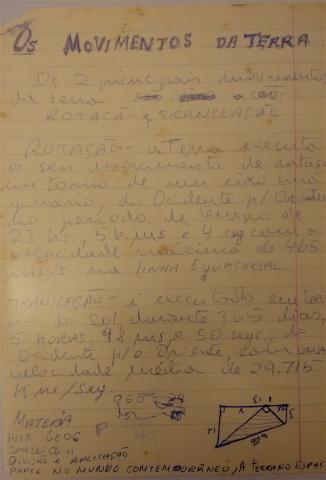 Os MOVIMENTOS DA TERRA
Os 2 principais movimentos
da terra são
ROTAÇÃO e TRANSLAÇÃO
ROTAÇÃO - a Terra executa
o seu movimento de rotação
em torno de um eixo ima
ginário, do Ocidente p/ Oriente
no período de tempo de
23 hs, 56 ms e 4 seg com a
velocidade máxima de 465
ms/s na LINHA EQUATORIAL
TRANSLAÇÃO - é executado em tor
no do Sol, durante 365 dias,
5 horas, 48 ms e 50 segs, do
Ocidente p/o Oriente, com uma
velocidade média de 29.715
Km/seg.
MATÉRIA
HIST. GEOG.
DIVISÃO E APLICAÇÃO
PAPEL NO MUNDO CONTEMPORÂNEO, A TERRA NO ESPAÇO
12
13
3